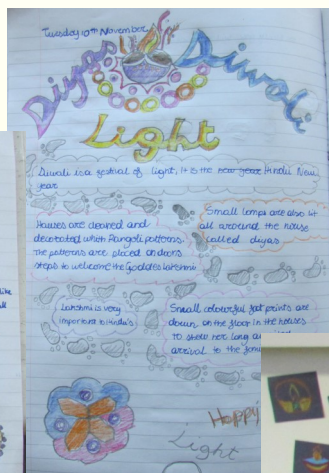 Tuesday 10th November
Diyas Diwali
Light
Diwali is a festival of light, it is the new year Hindu New
year
Houses are cleaned and
decorated which Rangoli patterns.
The patterns are placed on doors
steps to welcome the Goddes Lakshmi
Small lamps are also lit
all around the house
called diyas
Lakshmi is very
important to Hindu's
Small colourful foot prints are
down on the floor in the houses
to show her long
arrival to the
Happy
Light
like